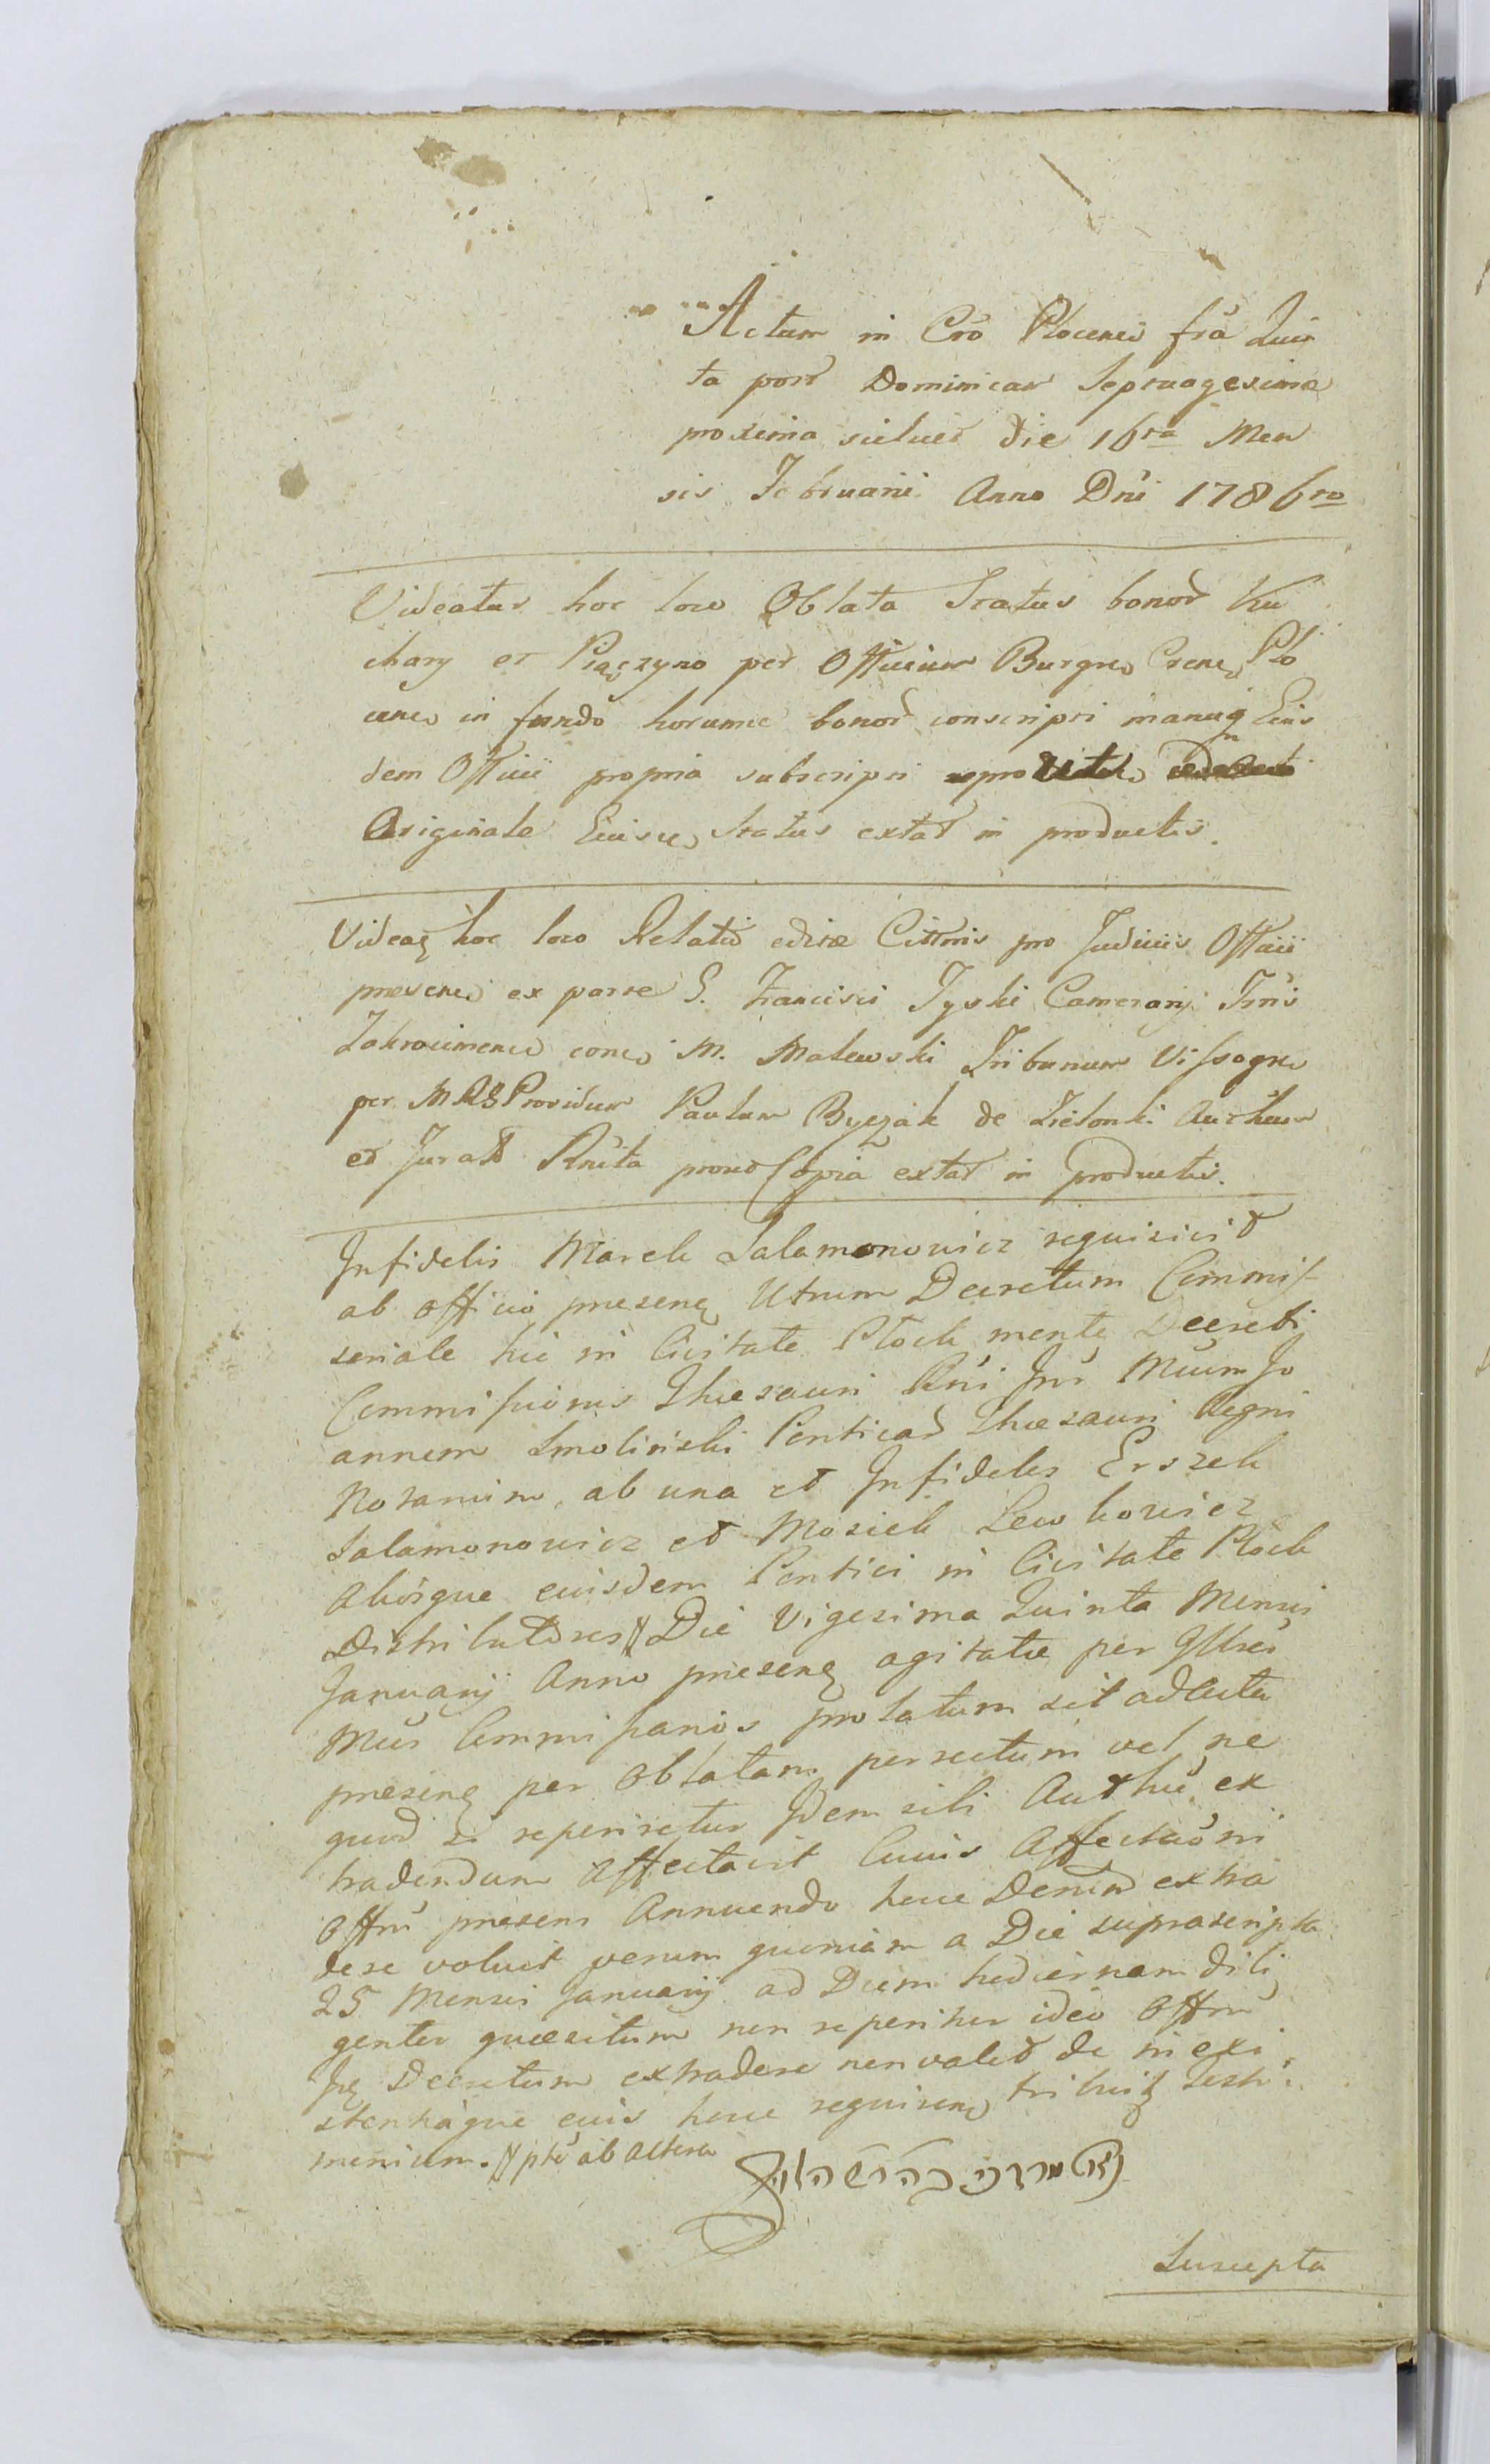 Actum in Cro Plocensi fra Quin
ta post Dominicam Septuagesimae
proxima scilicet die 16ta Men
sis Februarii Anno Dni 1786to
Videatur hoc loco Oblata Status bonor Ku
chary et Piączyno per Officium Burgr Crense Plo
cense in fundo horumce bonor conscripti manuq Eius
dem Officii propria subscripti
Originale Eiusce Status extat in productis.
Videaҭ hoc loco Relatio editae Cittonis pro Judiciis Officii
presenti ex parte G. Francisci Tyski Camerarij Trris
Zakrocimensi conc M. Malewski Tribunum Vissogr
per Providum Paulum de Zielonki Authum
et Jurat Rnita prout Copia extat in productis.
Infidelis Marek Salamonowicz requisivit
ab officio presenę Utrum Decretum Commis
soriale hic in Civitate Płock mentę Decreti
Commissionis Thesauri Rni Inr Mucum Jo
annem Smoliński Ponticar Thesauri Regni
Notarium, ab una et Infideles Erszek
Salamonowicz et Mosiek Lewkowicz
aliosque eiusdem Pontici in Civitate Płock
Distributores Die Vigesima Quinta Mensis
Januarij Anno presenę agitatae per Illres
Mcos Commissarios prolatum sit ad Acta
presenę per oblatam porrectum vel ne
quod si reperiretur Idem sibi Authu ex
tradendum affectavit Cuius affectaoni
Offm presens Annuendo hocce Decretum extra
dere voluit verum quoniam a Die suprascripta
25 Mensis Januarij ad Diem hodiernam dili
genter quaesitum non reperitur ideo Offm
Decretum extradere non valet de inexi
stentiaque eius hocce requirenę tribuit testi
monium. pte ab altera
Suscepta